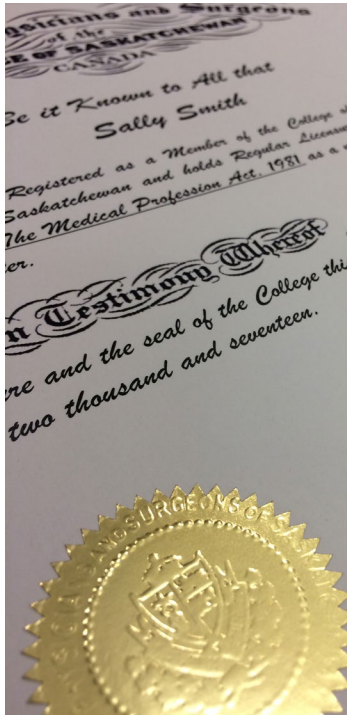 ysicians and Surgeons
of the
GE OF SASKATCHEWAN
CANADA
Be it Known to All that
Sally Smith
Registered as a Member of the College o
Saskatchewan and holds Regular Licensu
The Medical Profession Act, 1981 as a
er.
n Testimony Whereof
ere and the seal of the College thi
two thousand and seventeen.
AND SURGEONS OF SASK